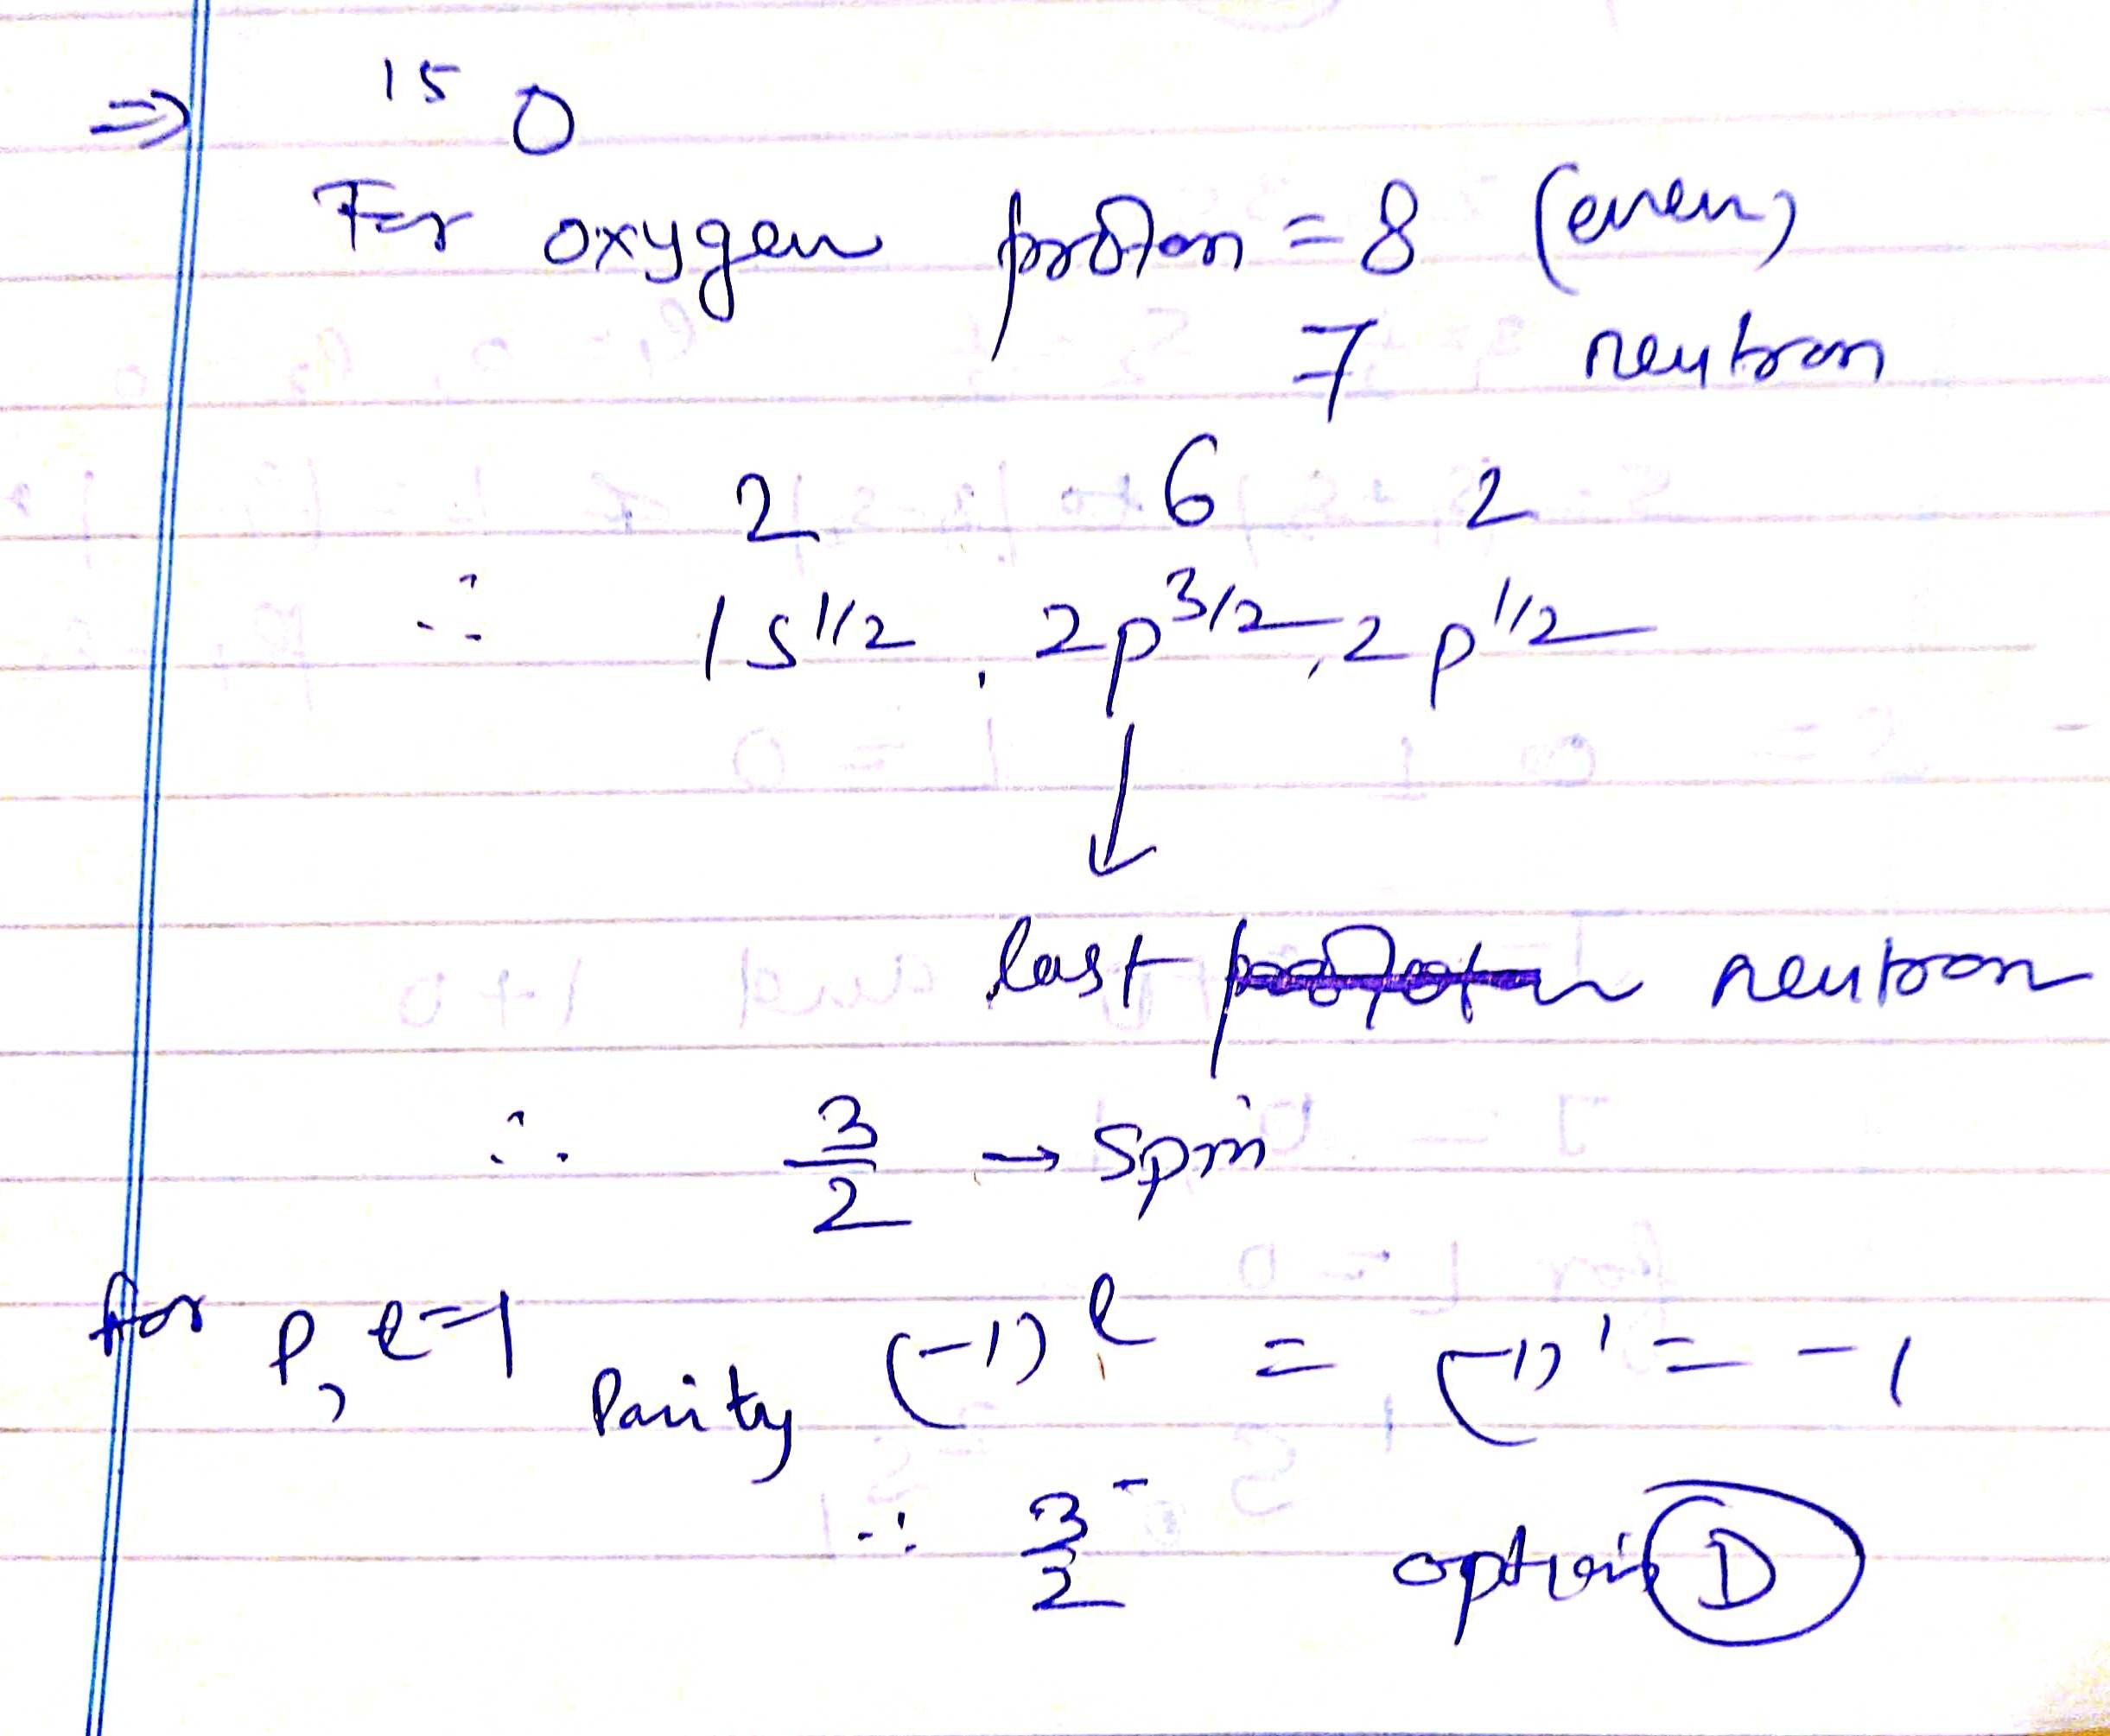 ⇒ ¹⁵O
For oxygen proton = 8 (even)
7 neutron
2 6 2
∴ 1s^1/2, 2p^3/2, 2p^1/2
↓
last neutron
∴ 3/2 → spin
for p, l=1 Parity (-1)^l = (-1)^1 = -1
∴ 3/2^- option D